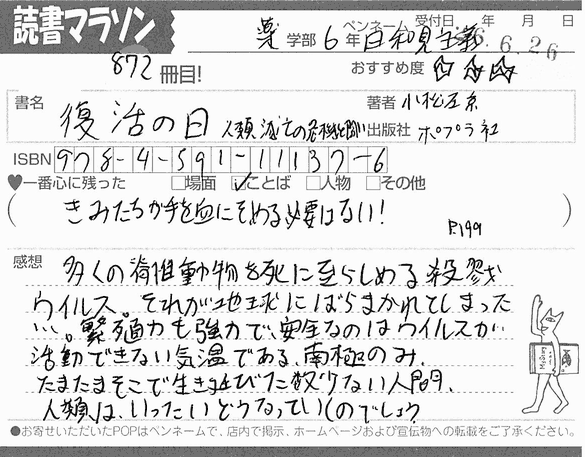 読書マラソン
872冊目!
薬学部6年 ペンネーム 日和見主義 受付日 年 月 日
6.6.26
おすすめ度 ☆☆☆
書名 復活の日 人類滅亡の危機との闘い
著者 小松左京
出版社 ポプラ社
ISBN 978-4-591-11137-6
♥一番心に残った □場面 ☑ことば □人物 □その他
(きみたちが手を血にそめる必要はない! P.199)
感想 多くの脊椎動物を死に至らしめる殺戮
ウイルス。それが地球にばらまかれてしまった
…。繁殖力も強力で、安全なのはウイルスが
活動できない気温である、南極のみ。
たまたまそこで生き延びた数少ない人間。
人類は、いったいどうなっていくのでしょう?
●お寄せいただいたPOPはペンネームで、店内で掲示、ホームページおよび宣伝物への転載をご了承ください。